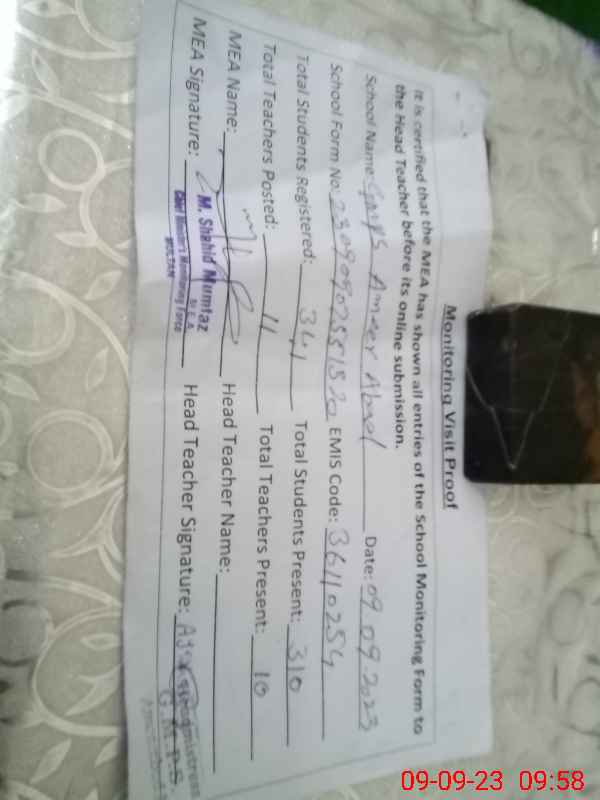 Monitoring Visit Proof
It is certified that the MEA has shown all entries of the School Monitoring Form to
the Head Teacher before its online submission.
School Name: Ameer Date: 09.09.2023
School Form No: EMIS Code: 36110254
Total Students Registered: 341 Total Students Present: 310
Total Teachers Posted: 11 Total Teachers Present: 10
MEA Name: Head Teacher Name:
MEA Signature: Head Teacher Signature:
M. Shahid Mumtaz
M.E.A.
Chief Minister's Monitoring Force
MULTAN
09-09-23 09:58